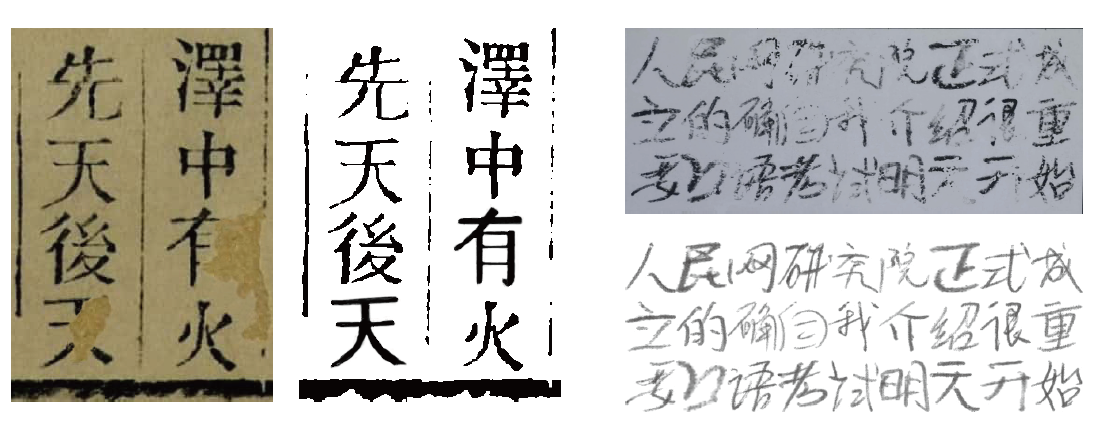 澤中有火
先天後天
澤中有火
先天後天
人民网研究院正式成
立的确自我介绍很重
要口语考试明天开始
人民网研究院正式成
立的确自我介绍很重
要口语考试明天开始